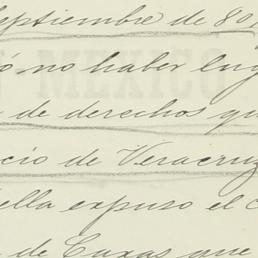 septiembre de 80,
ó no haber lug
de derechos qu
cio de Veracruz
ella expuso el C
de Casas que